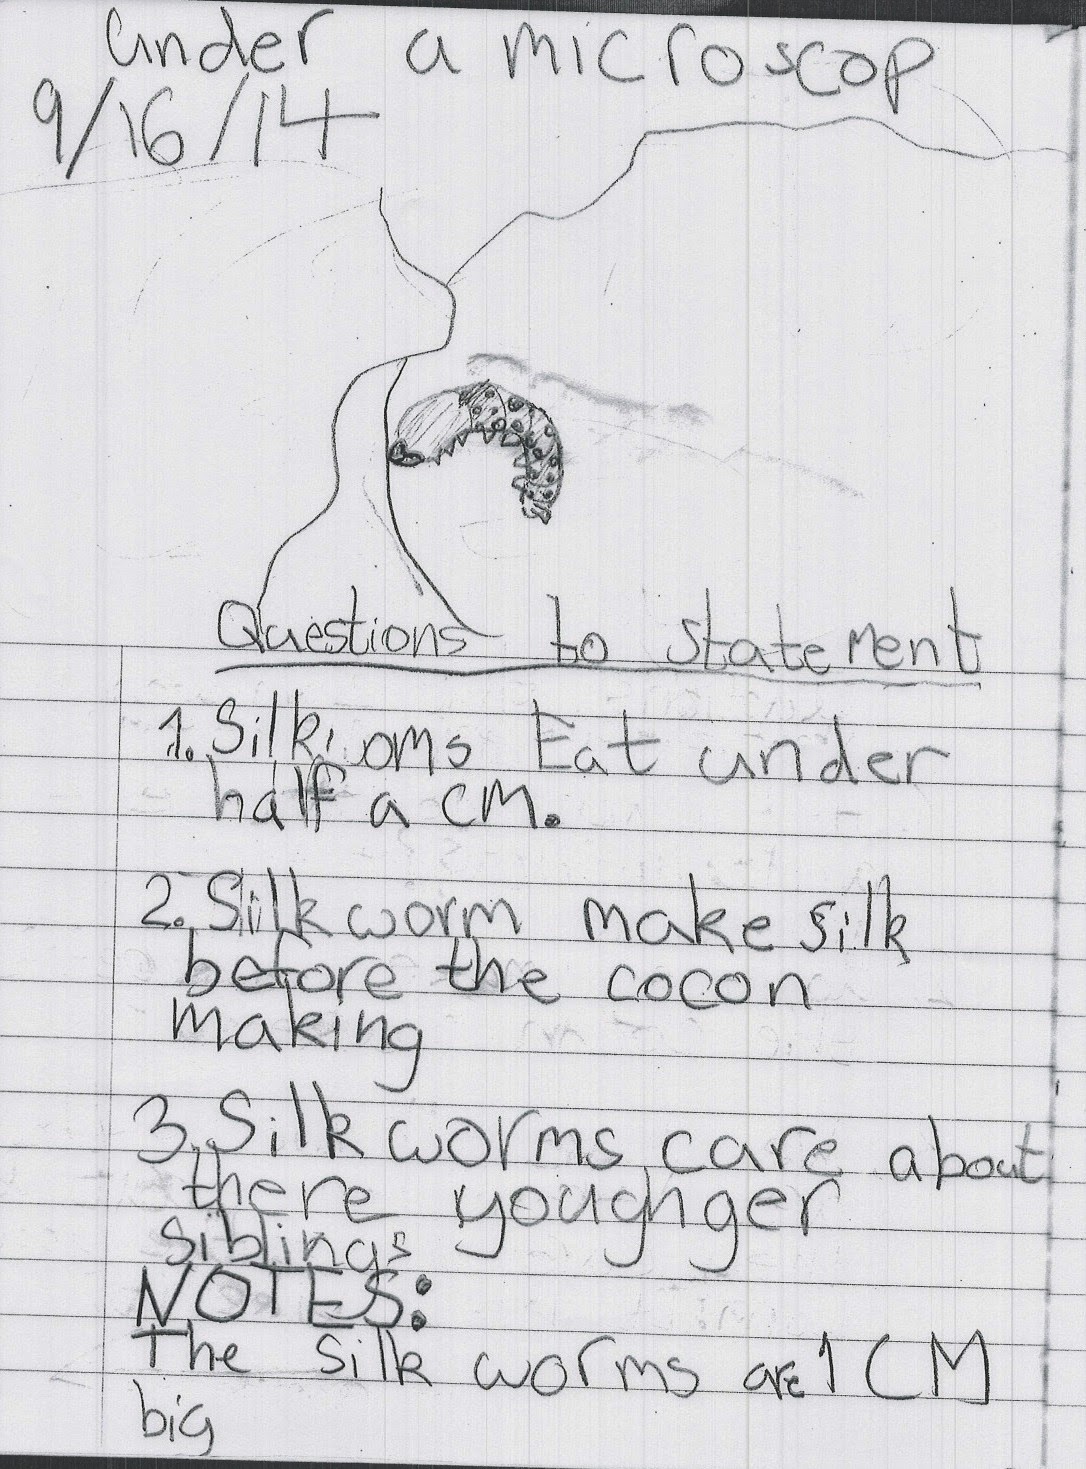 under a microscop
9/16/14
Questions to statement
1. Silk oms Eat under
half a CM.
2. Silk worm make silk
before the cocon
making
3. Silk worms care about
there youghger
siblings
NOTES:
The silk worms are 1 CM
big